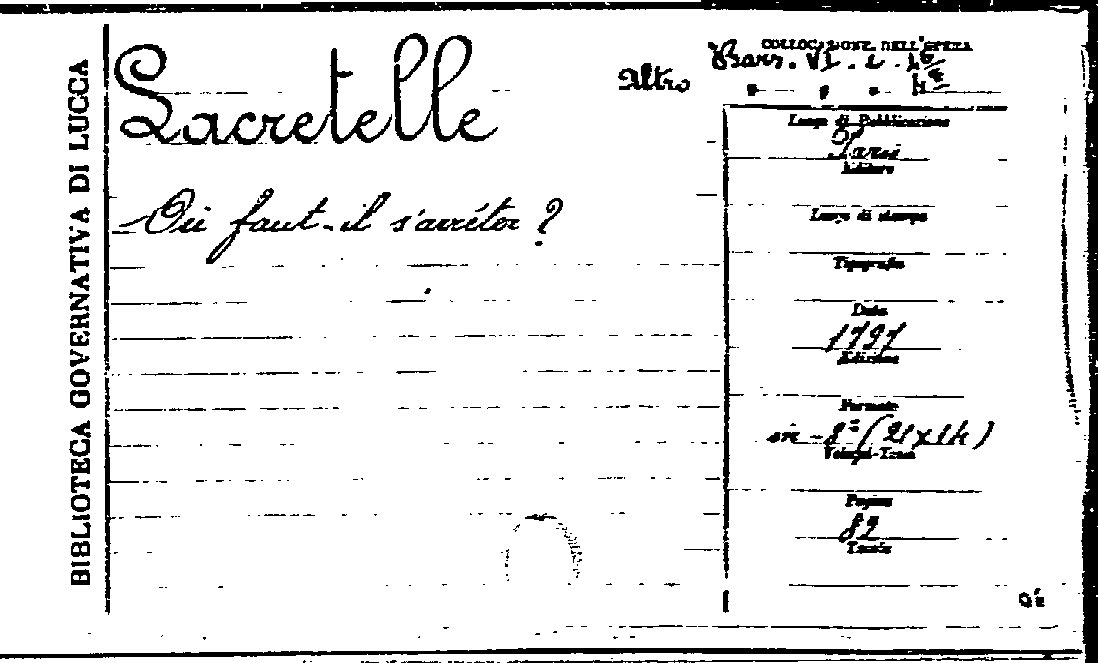 BIBLIOTECA GOVERNATIVA DI LUCCA
Lacretelle
Altro
COLLOCAZIONE DELL'OPERA
Barr. VI. c.
Où faut-il s'arrêter?
Luogo di Pubblicazione
Paris
Editore
Luogo di stampa
Tipografia
Data
1797
Edizione
Formato
in-8º (21x14)
Volumi-Tomi
Pagine
82
Tavole